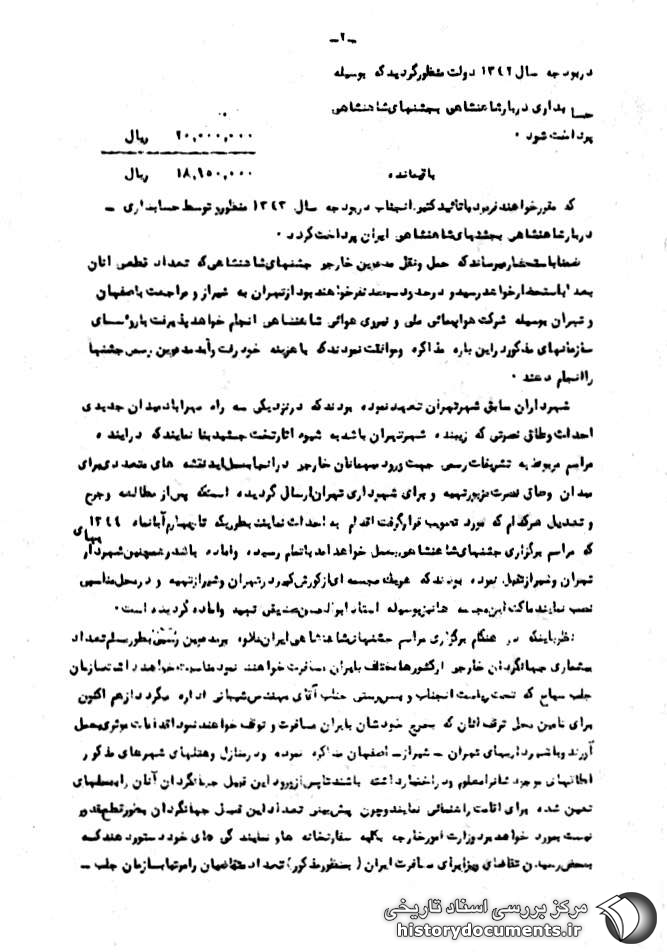 -۲-
در بودجه سال ۱۳۴۲ دولت منظور گردید که بوسیله
حسابداری دربار شاهنشاهی بجشنهای شاهنشاهی
پرداخت شود ۰ ۲۰,۰۰۰,۰۰۰ ریال
باقیمانده ۱۸,۱۵۰,۰۰۰ ریال
که مقرر خواهند فرمود با تائید کتبی آنجناب در بودجه سال ۱۳۴۳ منظور و توسط حسابداری -
دربار شاهنشاهی بجشنهای شاهنشاهی ایران پرداخت گردد ۰
ضمنا باستحضار میرساند که حمل و نقل مدعوین خارجی جشنهای شاهنشاهی که تعداد قطعی آنان
بعدا باستحضار خواهد رسید و در حدود سیصد نفر خواهند بود از تهران به شیراز و مراجعت باصفهان
و تهران بوسیله شرکت هواپیمائی ملی و نیروی هوائی شاهنشاهی انجام خواهد پذیرفت با روسای
سازمانهای مذکور در این باره مذاکره و موافقت نمودند که با هزینه خود رفت و آمد مدعوین رسمی جشنها
را انجام دهند ۰
شهرداران سابق شهر تهران تعهد نموده بودند که در نزدیکی سه راه مهرآباد میدان جدیدی
احداث و طاق نصرتی که زیبنده شهر تهران باشد به شیوه آثار تخت جمشید بنا نمایند که در آینده
مراسم مربوط به تشریفات رسمی جهت ورود میهمانان خارجی در آنجا بعمل آید نقشه های متعددی برای
میدان و طاق نصرت مزبور تهیه و برای شهرداری تهران ارسال گردیده است که پس از مطالعه و جرح
و تعدیل هر کدام که مورد تصویب قرار گرفت اقدام به احداث نمایند بطوریکه تا چهارم آبانماه ۱۳۴۴
که مراسم برگزاری جشنهای شاهنشاهی بعمل خواهد آمد باتمام رسیده و آماده باشد و همچنین شهردار
تهران و شیراز تقبل نموده بودند که هر یک مجسمه ای از کورش کبیر در تهران و شیراز تهیه و در محل مناسبی
نصب نمایند ماکت این مجسمه ها نیز بوسیله استاد ابوالحسن صدیقی تهیه و آماده گردیده است ۰
نظر باینکه در هنگام برگزاری مراسم جشنهای شاهنشاهی ایران علاوه بر مدعوین رسمی بطور مسلم تعداد
بیشماری جهانگردان خارجی از کشورها مختلف بایران مسافرت خواهند نمود مناسبت خواهد داشت سازمان
جلب سیاح که تحت ریاست آنجناب و بسرپرستی جناب آقای مهندس شیبانی اداره میگردد از هم اکنون
برای تامین محل توقف آنان که بخرج خودشان بایران مسافرت و توقف خواهند نمود اقدامات موثری بعمل
آورند و با شهرداریهای تهران - شیراز - اصفهان مذاکره نموده و در منازل و هتلهای شهرهای مذکور
اطاقهای موجود شانرا معلوم و در اختیار داشته باشند تا پس از ورود این قبیل جهانگردان آنان را بمحلهای
تعیین شده برای اقامت راهنمائی نمایند و چون پیش بینی تعداد این قبیل جهانگردان بطور قطع مقدور
نیست بمورد خواهد بود وزارت امور خارجه بکلیه سفارتخانه ها و نمایندگی های خود دستور دهند که
بمحض رسیدن تقاضای ویزا برای مسافرت ایران ( بمنظور مذکور ) تعداد متقاضیان را مرتبا بسازمان جلب -
مرکز بررسی اسناد تاریخی
historydocuments.ir